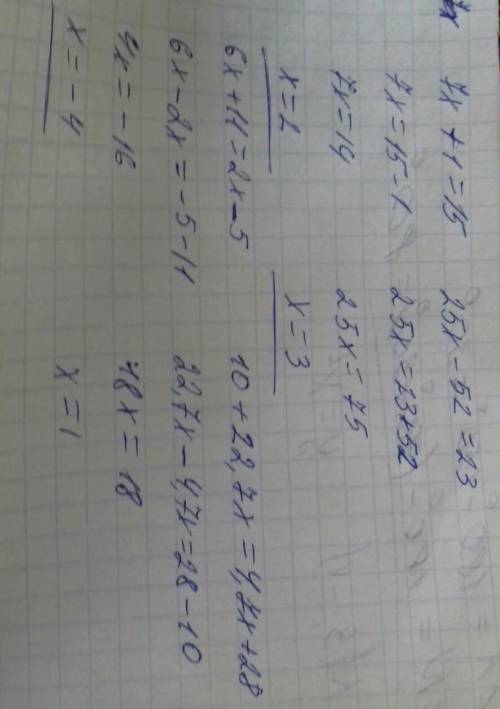 7x + 1 = 15
7x = 15 - 1
7x = 14
x = 2
25x - 52 = 23
25x = 23 + 52
25x = 75
x = 3
6x + 11 = 2x - 5
6x - 2x = -5 - 11
4x = -16
x = -4
10 + 22,7x = 4,7x + 28
22,7x - 4,7x = 28 - 10
18x = 18
x = 1